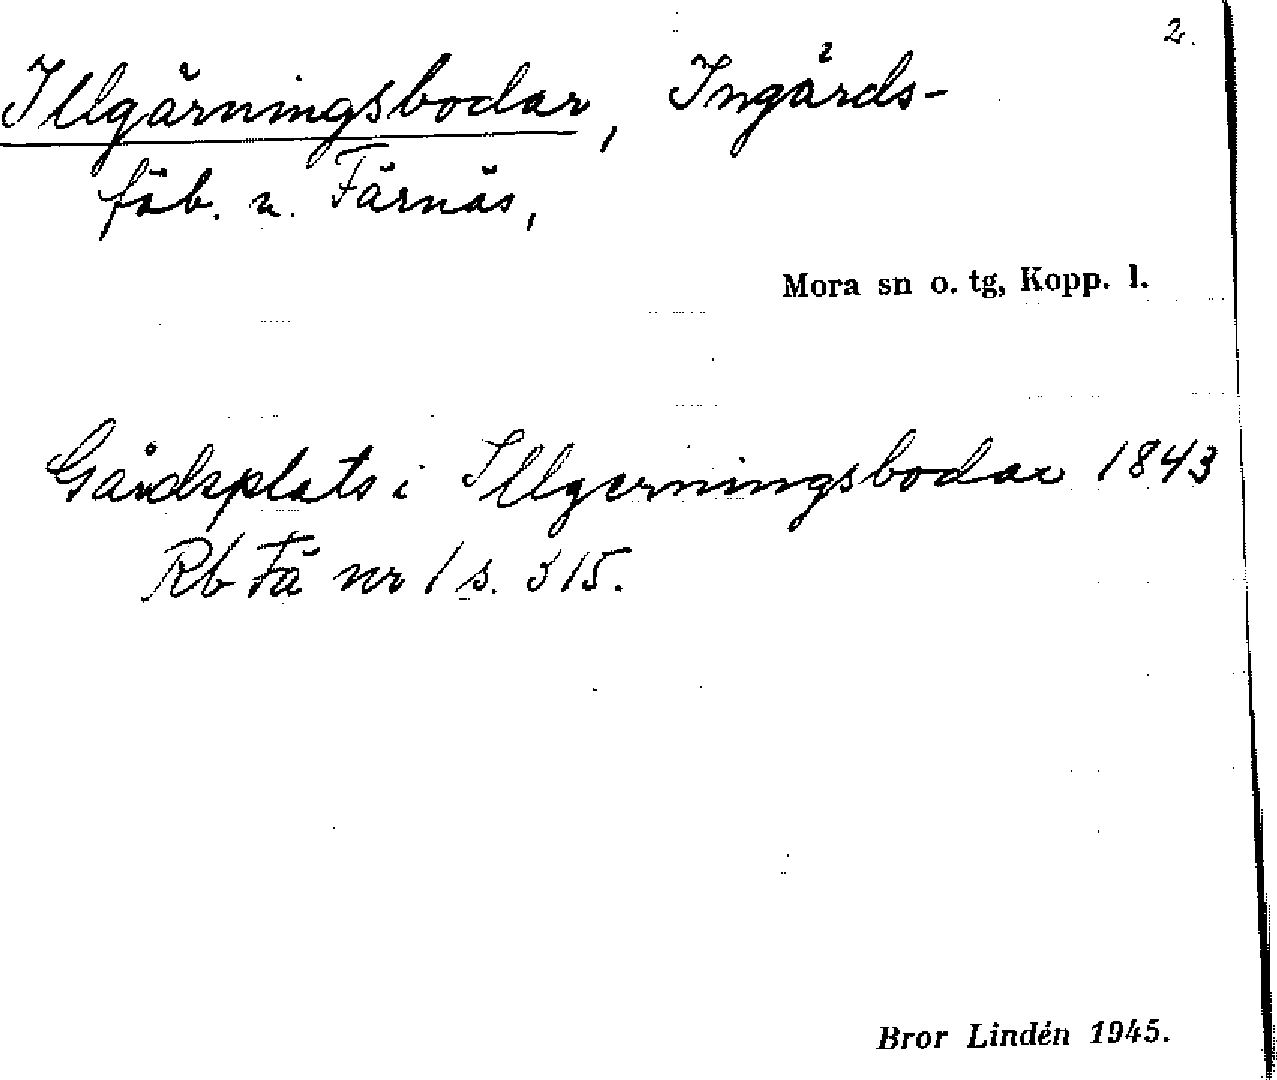 2.
Illgärningsbodar, Ingärds-
fäb. u. Färnäs,
Mora sn o. tg, Kopp. l.
Gårdsplats i Illgerningsbodar 1843
Rb Fä nr 1 s. 315.
Bror Lindén 1945.